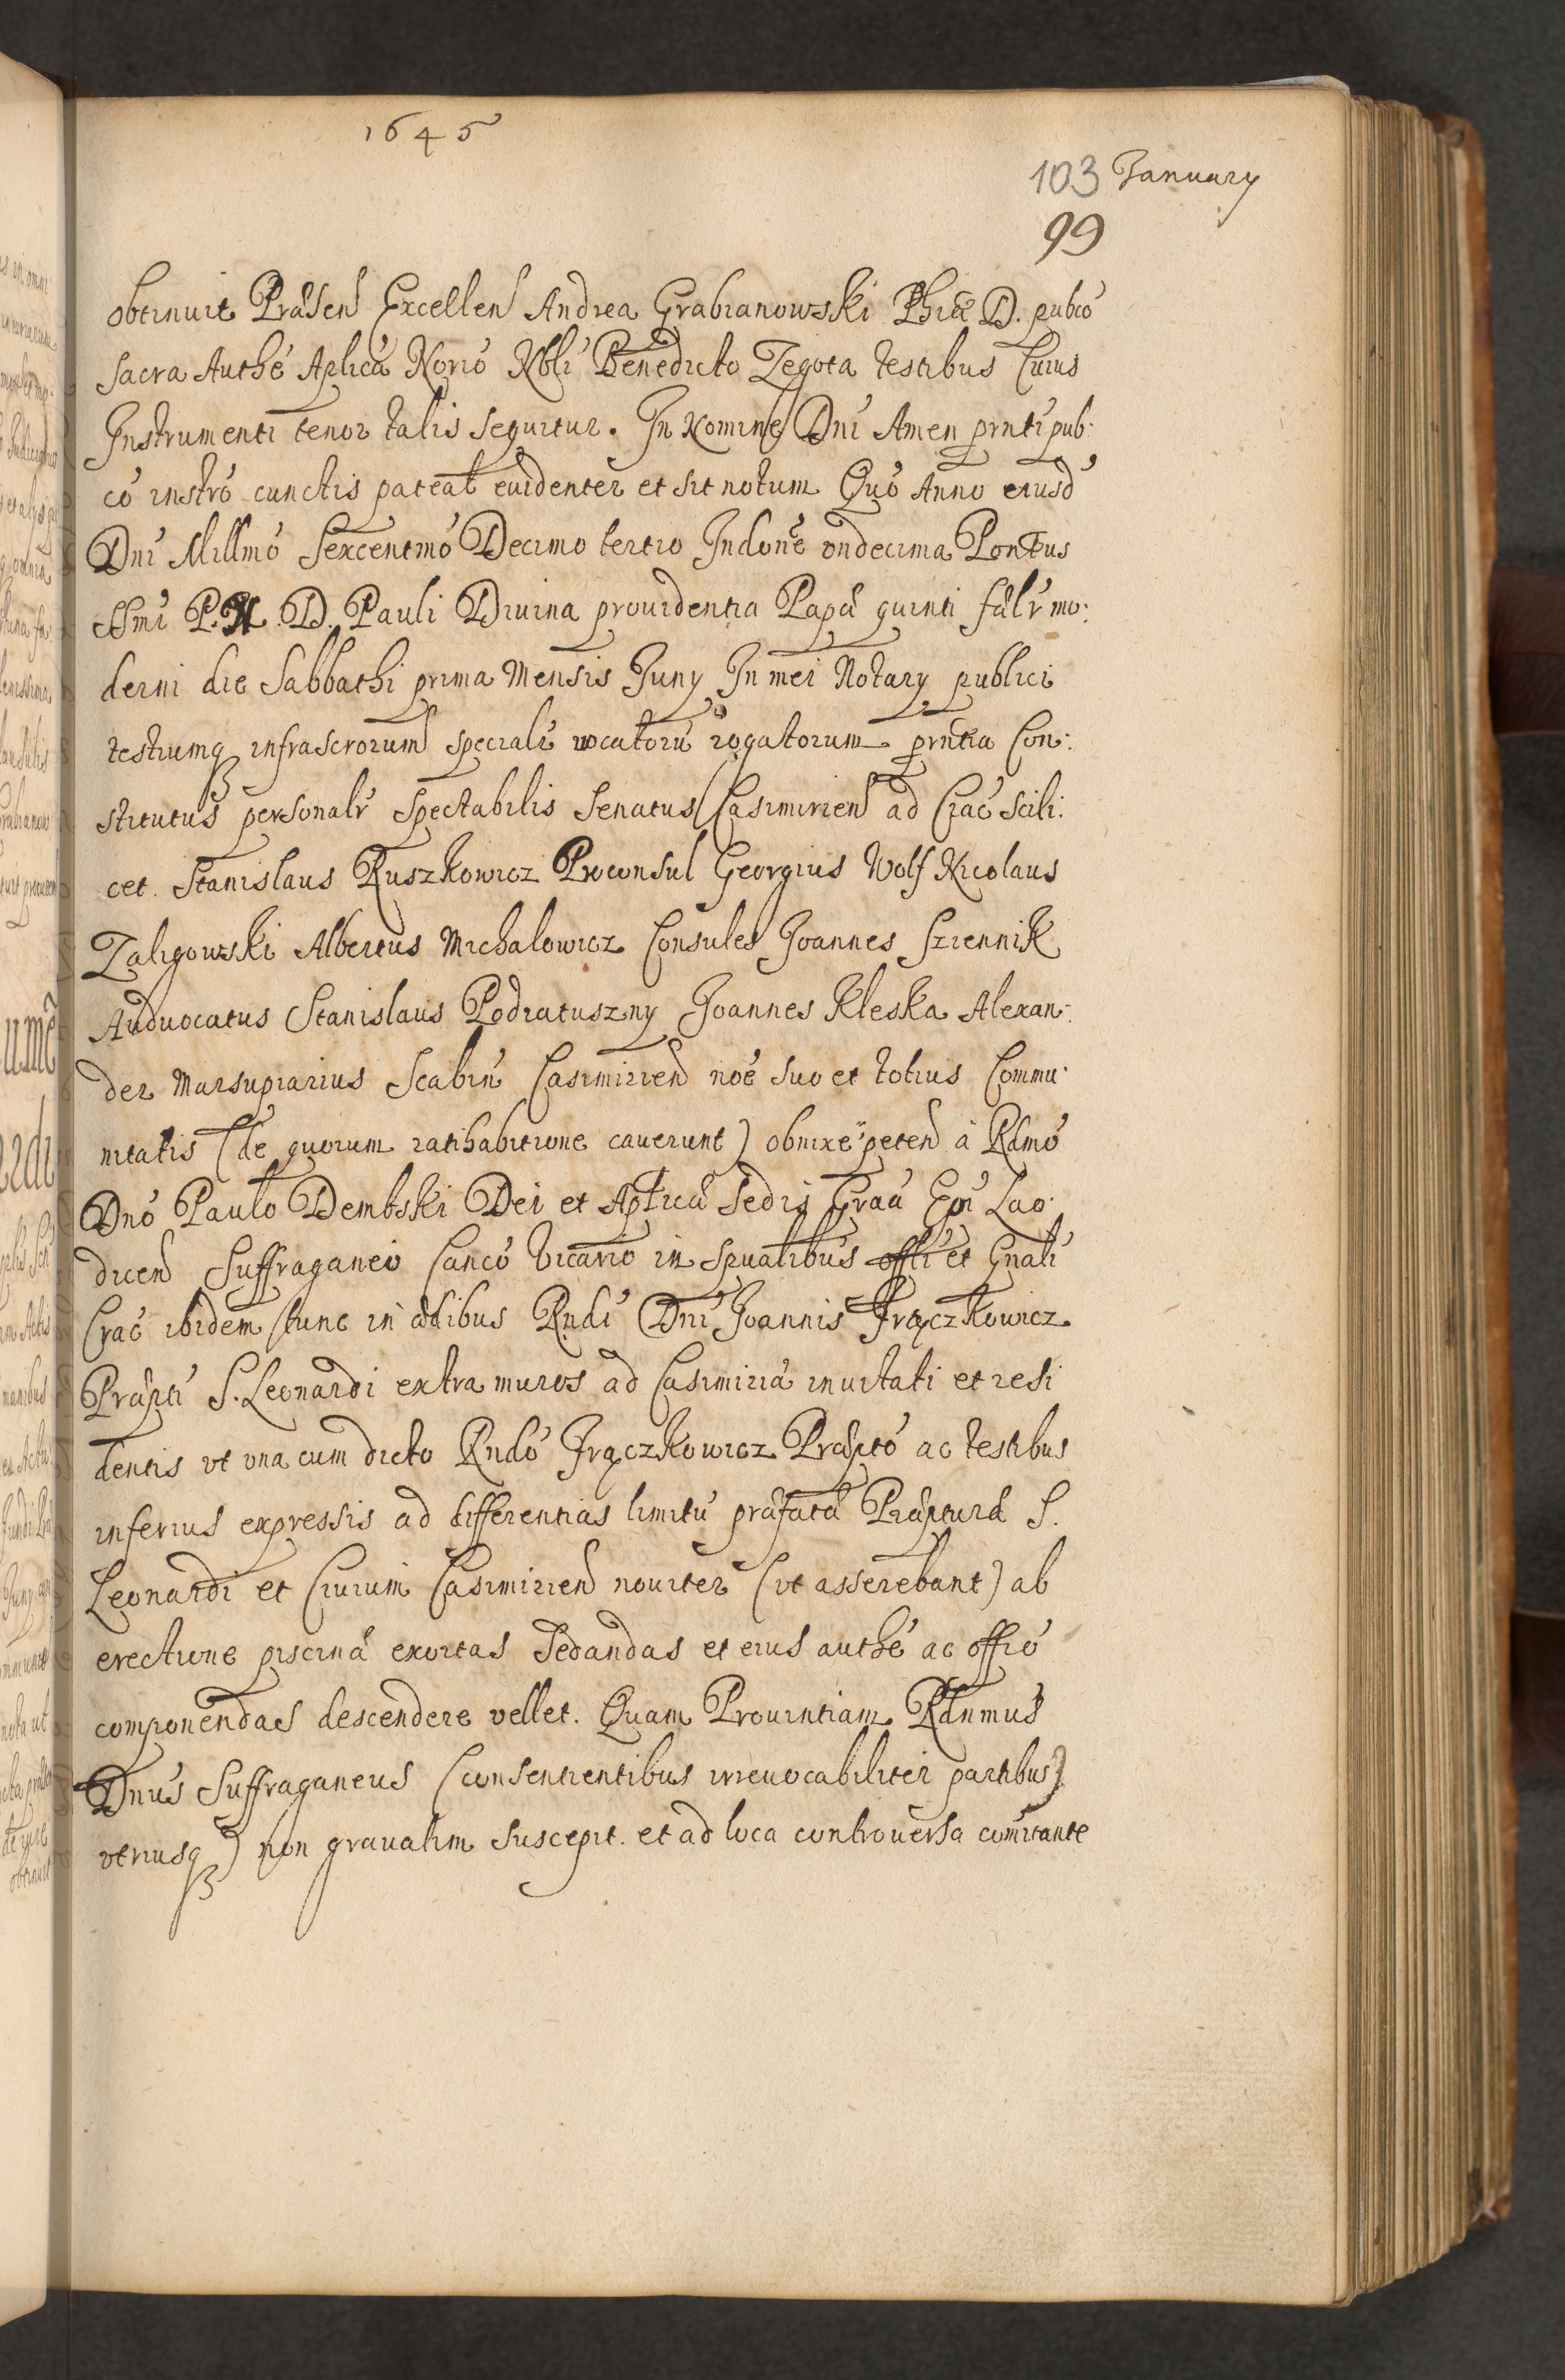 1645
103 January
99
obtinuit Præsen Excellen Andrea Grabianowski Phiæ D. pubco
sacra Authe Aplica Norio Nbli Benedicto Zegota testibus Cuius
Instrumenti tenor talis sequitur. In Nomine Dni Amen prnti pub:
co instro cunctis pateat euidenter et sit notum Quo Anno eiusd
Dni Millmo Sexcentmo Decimo tertio Indone vndecima Pontus
SSmi P. N. D. Pauli Diuina prouidentia Papæ quinti salr mo:
derni die Sabbathi prima Mensis Juny In mei Notary publici
testiumq infrascrorum specialr vocatoru rogatorum prntia Con:
stitutus personalr Spectabilis Senatus Casimirien ad Crac scili:
cet. Stanislaus Ruszkowicz Proconsul Georgius Wolf Nicolaus
Zaligowski Albertus Michalowicz Consules Joannes Sziennik
Auduocatus Stanislaus Podiatuszny Joannes Kleska Alexan:
der Marsupiarius Scabin Casimirien noe suo et totius Commu:
nitatis (de quorum ratihabitione cauerunt) obnixe peten a Rdmo
Dno Paulo Dembski Dei et Aplicæ sedis Graa Epi Lao:
dicen Suffraganeo Canco Vicario in Spualibus offli et Gnali
Crac ibidem tunc in ædibus Rndi Dni Joannis Frączkowicz
Præpti S. Leonardi extra muros ad Casimiria inuitati et resi
dentis vt vna cum dicto Rndo Frączkowicz Præpto ac testibus
inferius expressis ad differentias limitu præfatæ Præpturæ S.
Leonardi et Ciuium Casimirien nouiter (vt asserebant) ab
erectione piscinæ exortas sedandas et eius authe ac offio
componendas descendere vellet. Quam Prouintiam Rdnmus
Dnus Suffraganeus (consentientibus irreuocabiliter partibus)
vtriusq) non grauatim suscepit. et ad loca controuersa comitante